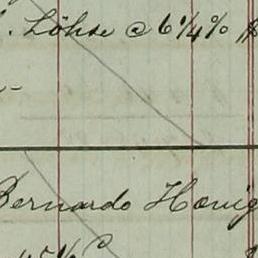 . Löhse @ 6 1/4 %
Bernardo Hoenig